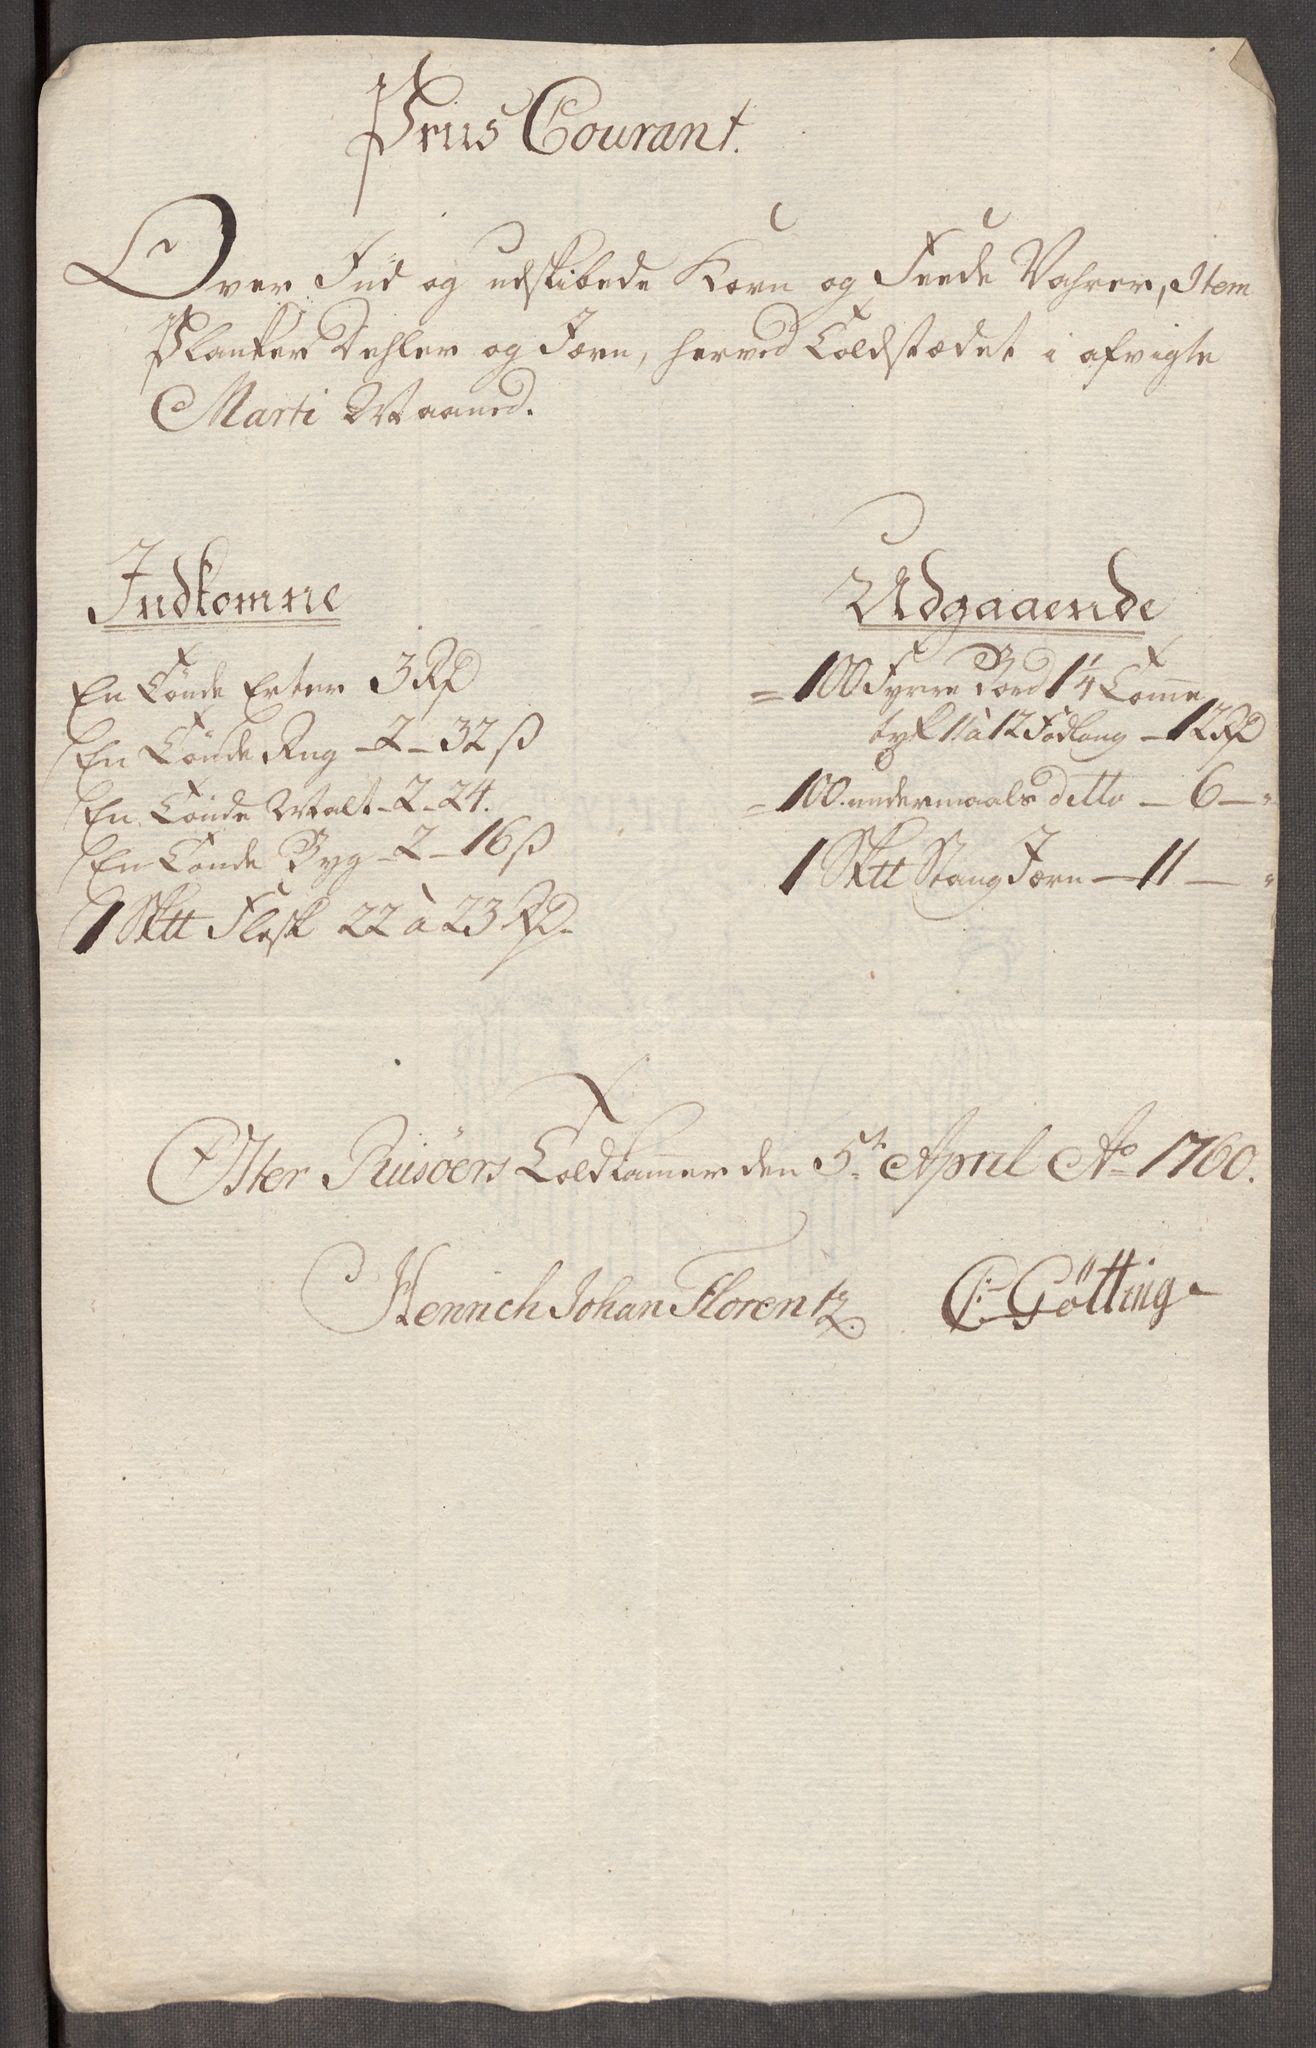 Priis Courant.
Over Ind og udskibede Korn og Feede Vahrer, Item
Planker Dehler og Jærn, herved Toldstædet i afvigte
Marti Maaned.
Indkomne
En Tønde Erter 3 Rd
En Tønde Rug - 2 - 32 ß
En Tønde Malt - 2 - 24.
En Tønde Byg - 2 - 16 ß
1 Sktt Flesk 22 à 23 Rd.
Udgaaende
= 100 Fyrre Bord 1 1/4 Tomme
tyk 11 à 12 Fod lang - 12 Rd
= 100 undermaals ditto - 6 - "
1 Sktt Stang Jærn - 11 - "
Øster Riisöers Toldkammer den 5t April Ao 1760.
Henrich Johan Florentz. C: Götting